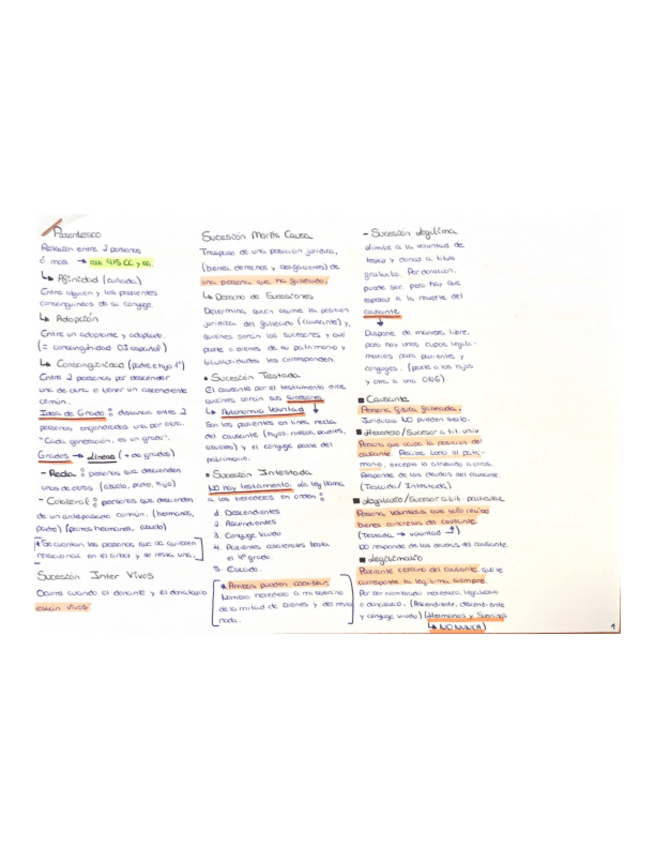 Parentesco
Relación entre 2 personas
ó más → art. 915 CC y ss.
↳ Afinidad (cuñada)
Entre alguien y los parientes
consanguíneos de su cónyuge.
↳ Adopción
Entre un adoptante y adoptado.
(= consanguinidad
↳ Consanguinidad (padre e hijo 1º)
Entre 2 personas por descender
una de otra o tener un ascendiente
común.
Idea de Grado: distancia entre 2
personas engendradas una por otra.
"Cada generación, es un grado".
Grados → Líneas (+ de grados)
- Recta: personas que descienden
unas de otras (abuelo, padre, hijo)
- Colateral: personas que descienden
de un antepasado común. (hermanos,
(primos hermanos, abuelo)
* Se cuentan las personas que se quieren
relacionar en el árbol y se resta una.
Sucesión Inter Vivos
Ocurre cuando el donante y el donatario
están vivos.
Sucesión Mortis Causa
Traspaso de una posición jurídica,
(bienes, derechos y obligaciones) de
una persona que ha fallecido.
↳ Derecho de Sucesiones
Determina quién asume la posición
jurídica del fallecido (causante) y,
quiénes serán los sucesores y qué
parte o bienes de su patrimonio y
titularidades les corresponden.
• Sucesión Testada
El causante por el testamento dice
quiénes serán sus sucesores
↳ Autonomía Voluntad ↓
Son los parientes en línea recta
del causante (hijos, nietos, padres,
abuelos) y el cónyuge parte del
patrimonio.
• Sucesión Intestada
NO hay testamento, la ley llama
a los herederos en orden:
1. Descendientes
2. Ascendientes
3. Cónyuge Viudo
4. Parientes colaterales hasta
el 4º grado.
5. Estado.
* Ambas pueden coexistir,
Nombro heredero a mi sobrino
de la mitad de bienes y del resto
nada.
- Sucesión Legítima
límite a la voluntad de
testar y donar a título
gratuito. Por donación,
puede ser, pero hay que
esperar a la muerte del
causante
↓
Dispone de manera libre,
pero hay unos cupos legiti-
marios para parientes y
cónyuges. (parte a los hijos
y otra a una ONG)
■ Causante
Persona física fallecida.
Jurídicas NO pueden serlo.
■ Heredero/Sucesor a tít. univ
Persona que ocupa la posición del
causante. Recibe todo el patri-
monio, excepto lo atribuido a otros.
Responde de las deudas del causante.
(Testada/Intestada)
■ Legatario/Sucesor a tít. particular
Persona voluntaria que solo recibe
bienes concretos del causante
(Testada → voluntad ↑)
NO responde de las deudas del causante.
■ Legitimario
Pariente cercano del causante, que le
corresponde la legítima, siempre.
Por ser nombrado heredero, legatario
o donatario. (Ascendiente, descendiente
y cónyuge viudo) (Hermanos y Sobrinos
↳ NO NUNCA)
1